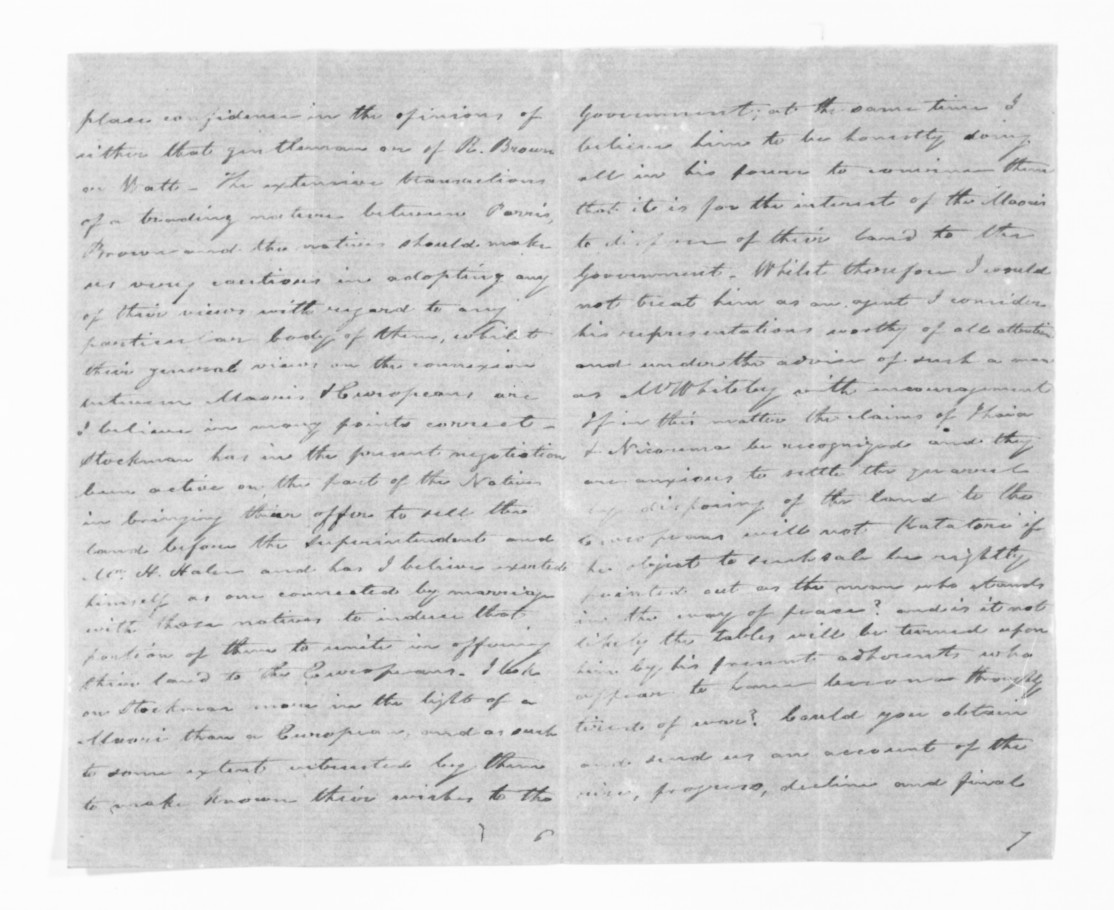 place confidence in the opinions of
either that gentleman or of R. Brown
or Watt - The extensive transactions
of a trading nature between Parris,
Brown and the natives should make
us very cautious in adopting any
of their views with regard to any
particular body of them, whilst
their general views on the connexion
between Maoris & Europeans are
I believe in many points correct -
Stockman has in the present negotiation
been active on the part of the Natives
in bringing their offer to sell the
land before the Superintendent and
Mr. H. Halse and has I believe exerted
himself as one connected by marriage
with those natives to induce that
portion of them to unite in offering
their land to the Europeans. I look
on Stockman more in the light of a
Maori than a European, and as such
to some extent by them
to make known their wishes to the
6
Government; at the same time I
believe him to be honestly doing
all in his power to convince them
that it is for the interest of the Maoris
to dispose of their land to the
Government. Whilst therefore I would
not treat him as an agent I consider
his representations worthy of all attention
and under the advice of such a man
as Mr Whiteley with encouragement
If in this matter the claims of Ihaia
& Nicorima be recognized and they
are anxious to settle the quarrel
by disposing of the land to the
Europeans will not Katatore if
he object to such sale be rightly
pointed out as the man who stands
in the way of peace? and is it not
likely the tables will be turned upon
him by his present adherents who
appear to have become thoroughly
tired of war? Could you obtain
and send us an account of the
rise, progress, decline and final
7